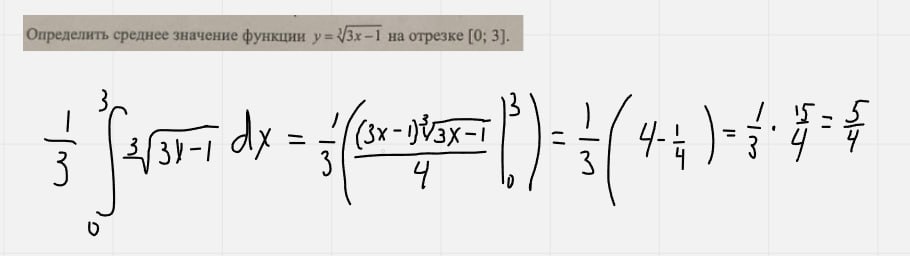 Определить среднее значение функции y = ∛(3x−1) на отрезке [0; 3].
1/3 ∫₀³ ∛(3x−1) dx = 1/3 ( (3x−1)∛(3x−1) / 4 |₀³ ) = 1/3 ( 4 − 1/4 ) = 1/3 · 15/4 = 5/4